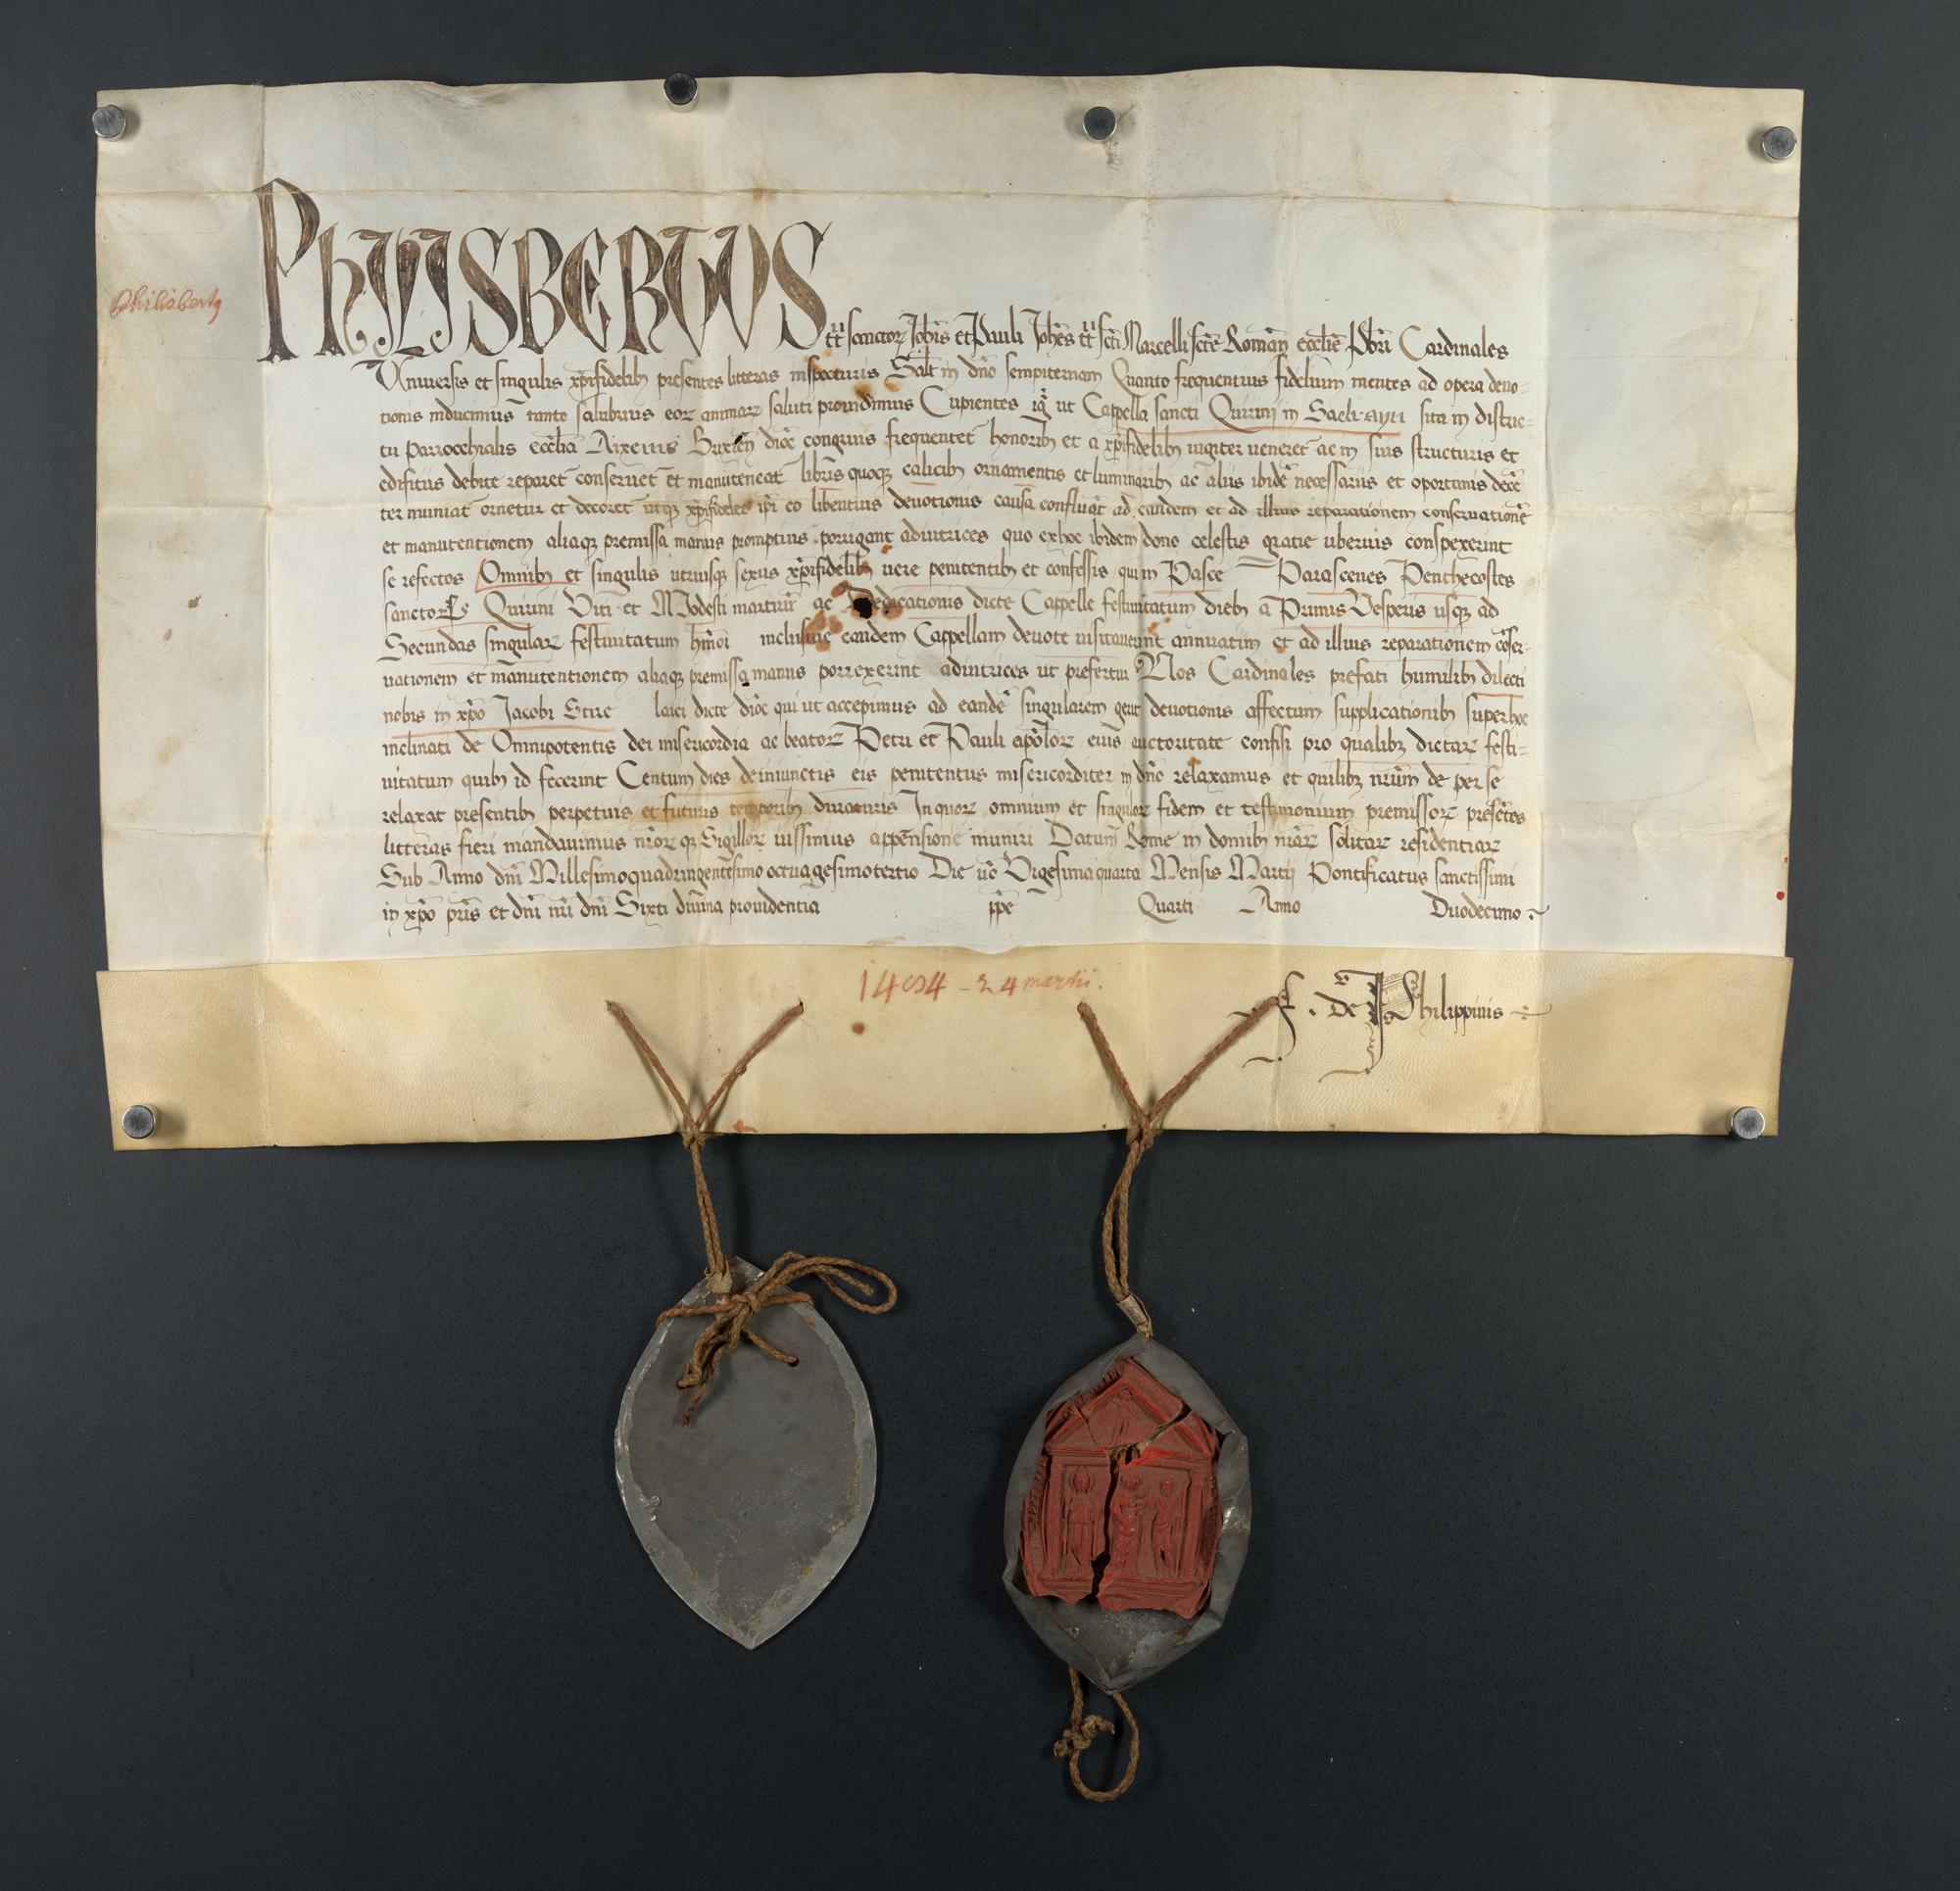 PHYLISBERTUS
tt sanctorꝝ Joh̄is et Pauli Joh̄es tt scti Marcelli scte Roman̄ eccl̄ie Pb̄ri Cardinales
Philisbertꝯ
Uniuersis et singulis xp̄ifidelibꝫ presentes litteras inspecturis Salt̄ in dn̄o sempiternam Quanto frequentius fidelium mentes ad opera deuo-
tionis inducimus tanto salubrius eorꝝ animarꝝ saluti prouidimus Cupientes igr̄ ut Cappella sancti Quirini in sita in distric-
tu parrochialis eccl̄ia Brixin̄ dioc̄ congruis frequentet̄ honoribꝫ et a xp̄ifidelibꝫ iugiter ueneret̄ ac in suis structuris et
edificiis debite reparet̄ conseruet̄ et manuteneat̄ libris quoqꝫ calicibꝫ ornamentis et luminaribꝫ ac aliis ibidē necessariis et oportunis decē
ter muniat̄ ornetur et decoret̄ utqꝫ xp̄ifideles ip̄i eo libentius deuotionis causa confluāt ad eandem et ad illius reparationem conseruationē
et manutentionem aliaqꝫ premissa manus promptius porrigant adiutrices quo exhoc ibidem dono celestis gratie uberius conspexerint
se refectos Omnibꝫ et singulis utriusqꝫ sexus xp̄ifidelibꝫ uere penitentibꝫ et confessis qui in Pasce Parascenes Penthecostes
sanctorꝝ Quirini Viti et Modesti martirū ac Dedicationis dicte Cappelle festiuitatum diebꝫ a Primis Vesperis usqꝫ ad
Secundas singularꝝ festiuitatum hm̄oi inclusiue eandem Cappellam deuote uisitauerint annuatim et ad illius reparationem cōser-
uationem et manutentionem aliaqꝫ premissa manus porrexerint adiutrices ut prefertur Nos Cardinales prefati humilibꝫ dilecti
nobis in xp̄o Jacobi laici dicte dioc̄ qui ut accepimus ad eandē singularem gerit deuotionis affectum supplicationibꝫ superhoc
inclinati de Omnipotentis dei misericordia ac beatorꝝ Petri et Pauli apl̄orꝝ eius auctoritate confisi pro qualibꝫ dictarꝝ festi-
uitatum quibꝫ id fecerint Centum dies deiniunctis eis penitentiis misericorditer in dn̄o relaxamus et quilibꝫ nr̄um de per se
relaxat presentibꝫ perpetuis et futuris temporibꝫ duraturis In quorꝝ omnium et singulorꝝ fidem et testimonium premissorꝝ presētes
litteras fieri mandauimus nr̄orꝝqꝫ Sigillorꝝ iussimus appensione muniri Datum Rome in domibꝫ nr̄arꝝ solitarꝝ residentiarꝝ
Sub Anno dn̄i Millesimoquadringentesimooctuagesimotertio Die uo Vigesimaquarta Mensis Martij Pontificatus sanctissimi
in xp̄o pr̄is et dn̄i nr̄i dn̄i Sixti diuina prouidentia pp̄e Quarti Anno Duodecimo
1484 - 24 martii.
de Philippinis